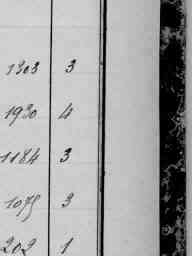 1303 3
1930 4
1184 3
1075 3
202 1